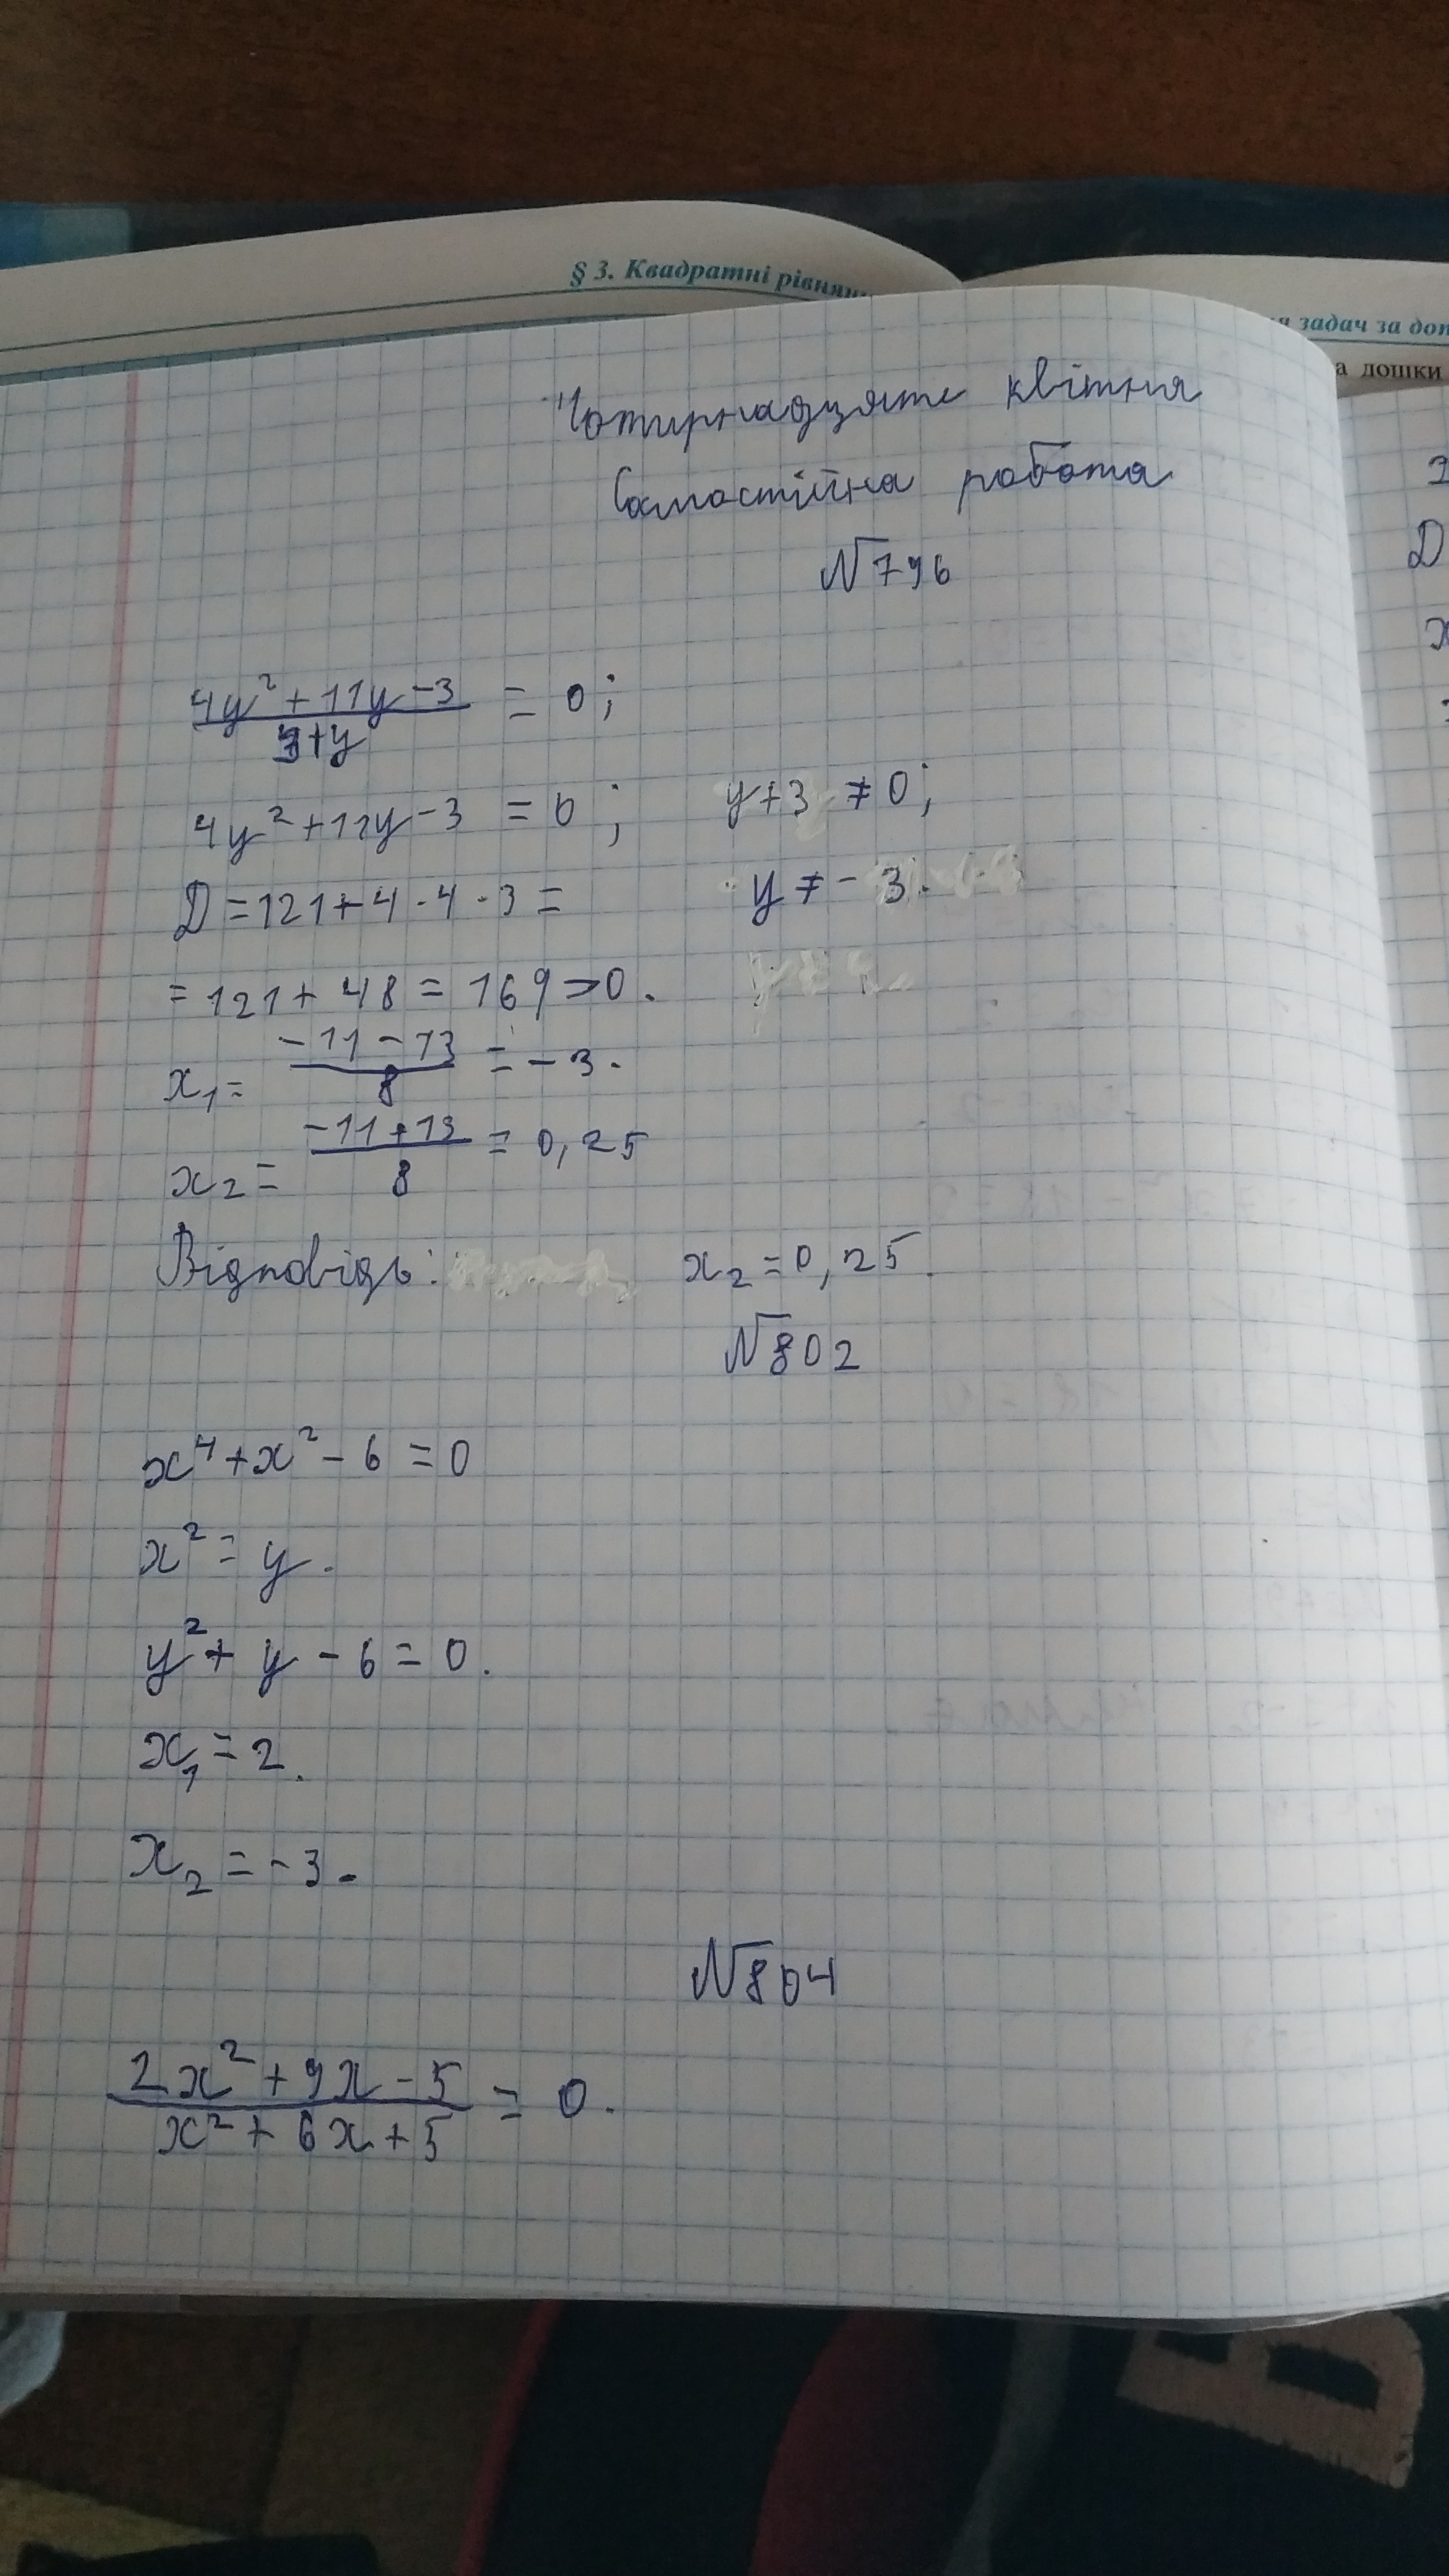 § 3. Квадратні рівнянн
я задач за доп
а дошки
Чотирнадцяте квітня
Самостійна робота
№796
(4y²+11y-3)/(3+y) = 0;
4y²+11y-3 = 0; y+3 ≠ 0;
D=121+4·4·3= y ≠ -3.
=121+48=169>0.
x₁= (-11-13)/8 = -3.
x₂= (-11+13)/8 = 0,25
Відповідь: x₂=0,25.
№802
x⁴+x²-6=0
x²=y.
y²+y-6=0.
x₁=2.
x₂=-3.
№804
(2x²+9x-5)/(x²+6x+5) = 0.